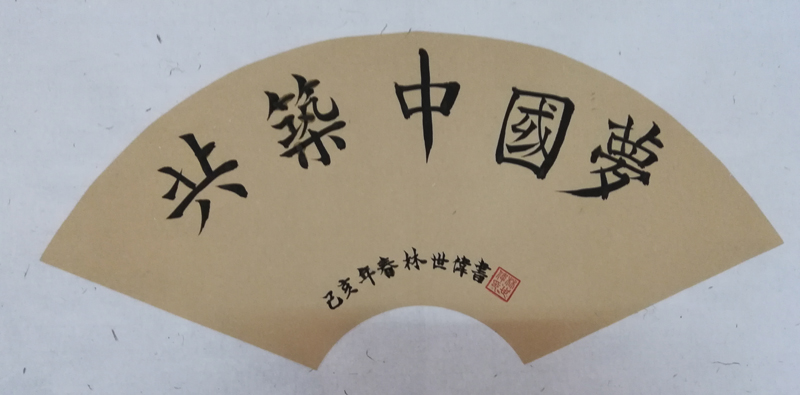 共築中國夢
己亥年春林世偉書